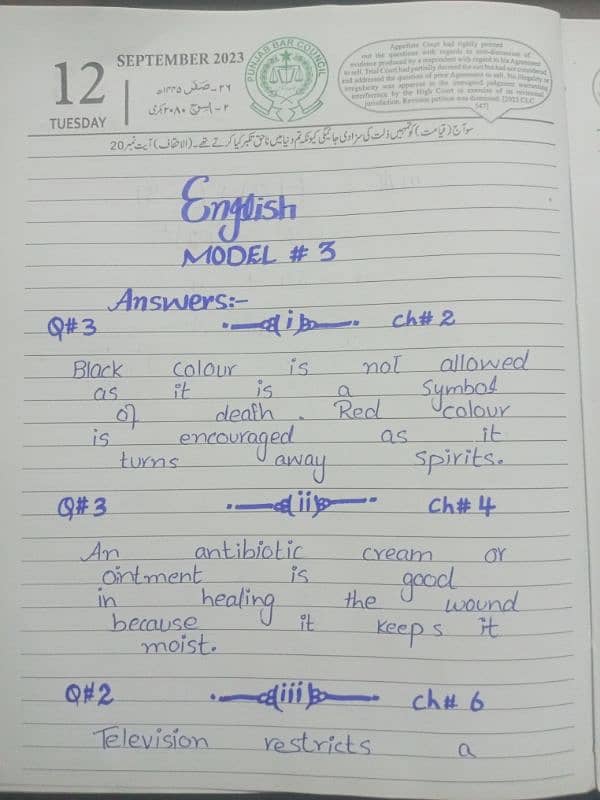 SEPTEMBER 2023
12
TUESDAY
PUNJAB BAR COUNCIL
Appellate Court had rightly pointed
out the questions with regards to non-discussion of
evidence produced by a respondent with regard to his Agreement
to sell. Trial Court had partially decreed the suit but had not considered
and addressed the question of prior Agreement to sell. No illegality or
irregularity was apparent in the impugned judgment warranting
interference by the High Court in exercise of its revisional
jurisdiction. Revision petition was dismissed. [2023 CLC
547]
سو آج (قیامت) کو تمہیں ذلت کی سزا دی جائیگی کیونکہ تم دنیا میں ناحق تکبر کیا کرتے تھے۔ (الاحقاف) آیت نمبر 20
English
MODEL # 3
Answers:-
Q#3 i Ch# 2
Black colour is not allowed
as it is a symbol
of death. Red colour
is encouraged as it
turns away spirits.
Q#3 ii Ch# 4
An antibiotic cream or
ointment is good
in healing the wound
because it keeps it
moist.
Q#2 iii Ch# 6
Television restricts a